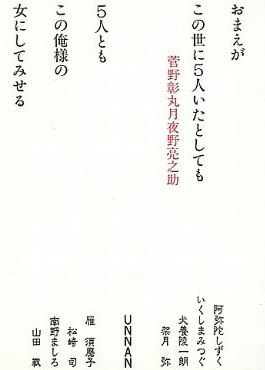 おまえが
この世に５人いたとしても
菅野彰丸月夜野亮之助
５人とも
この俺様の
女にしてみせる
阿弥陀しずく
いくしまみつぐ
犬養陵一朗
架月 弥
UNNAN
雁 須磨子
松崎 司
南野ましろ
山田